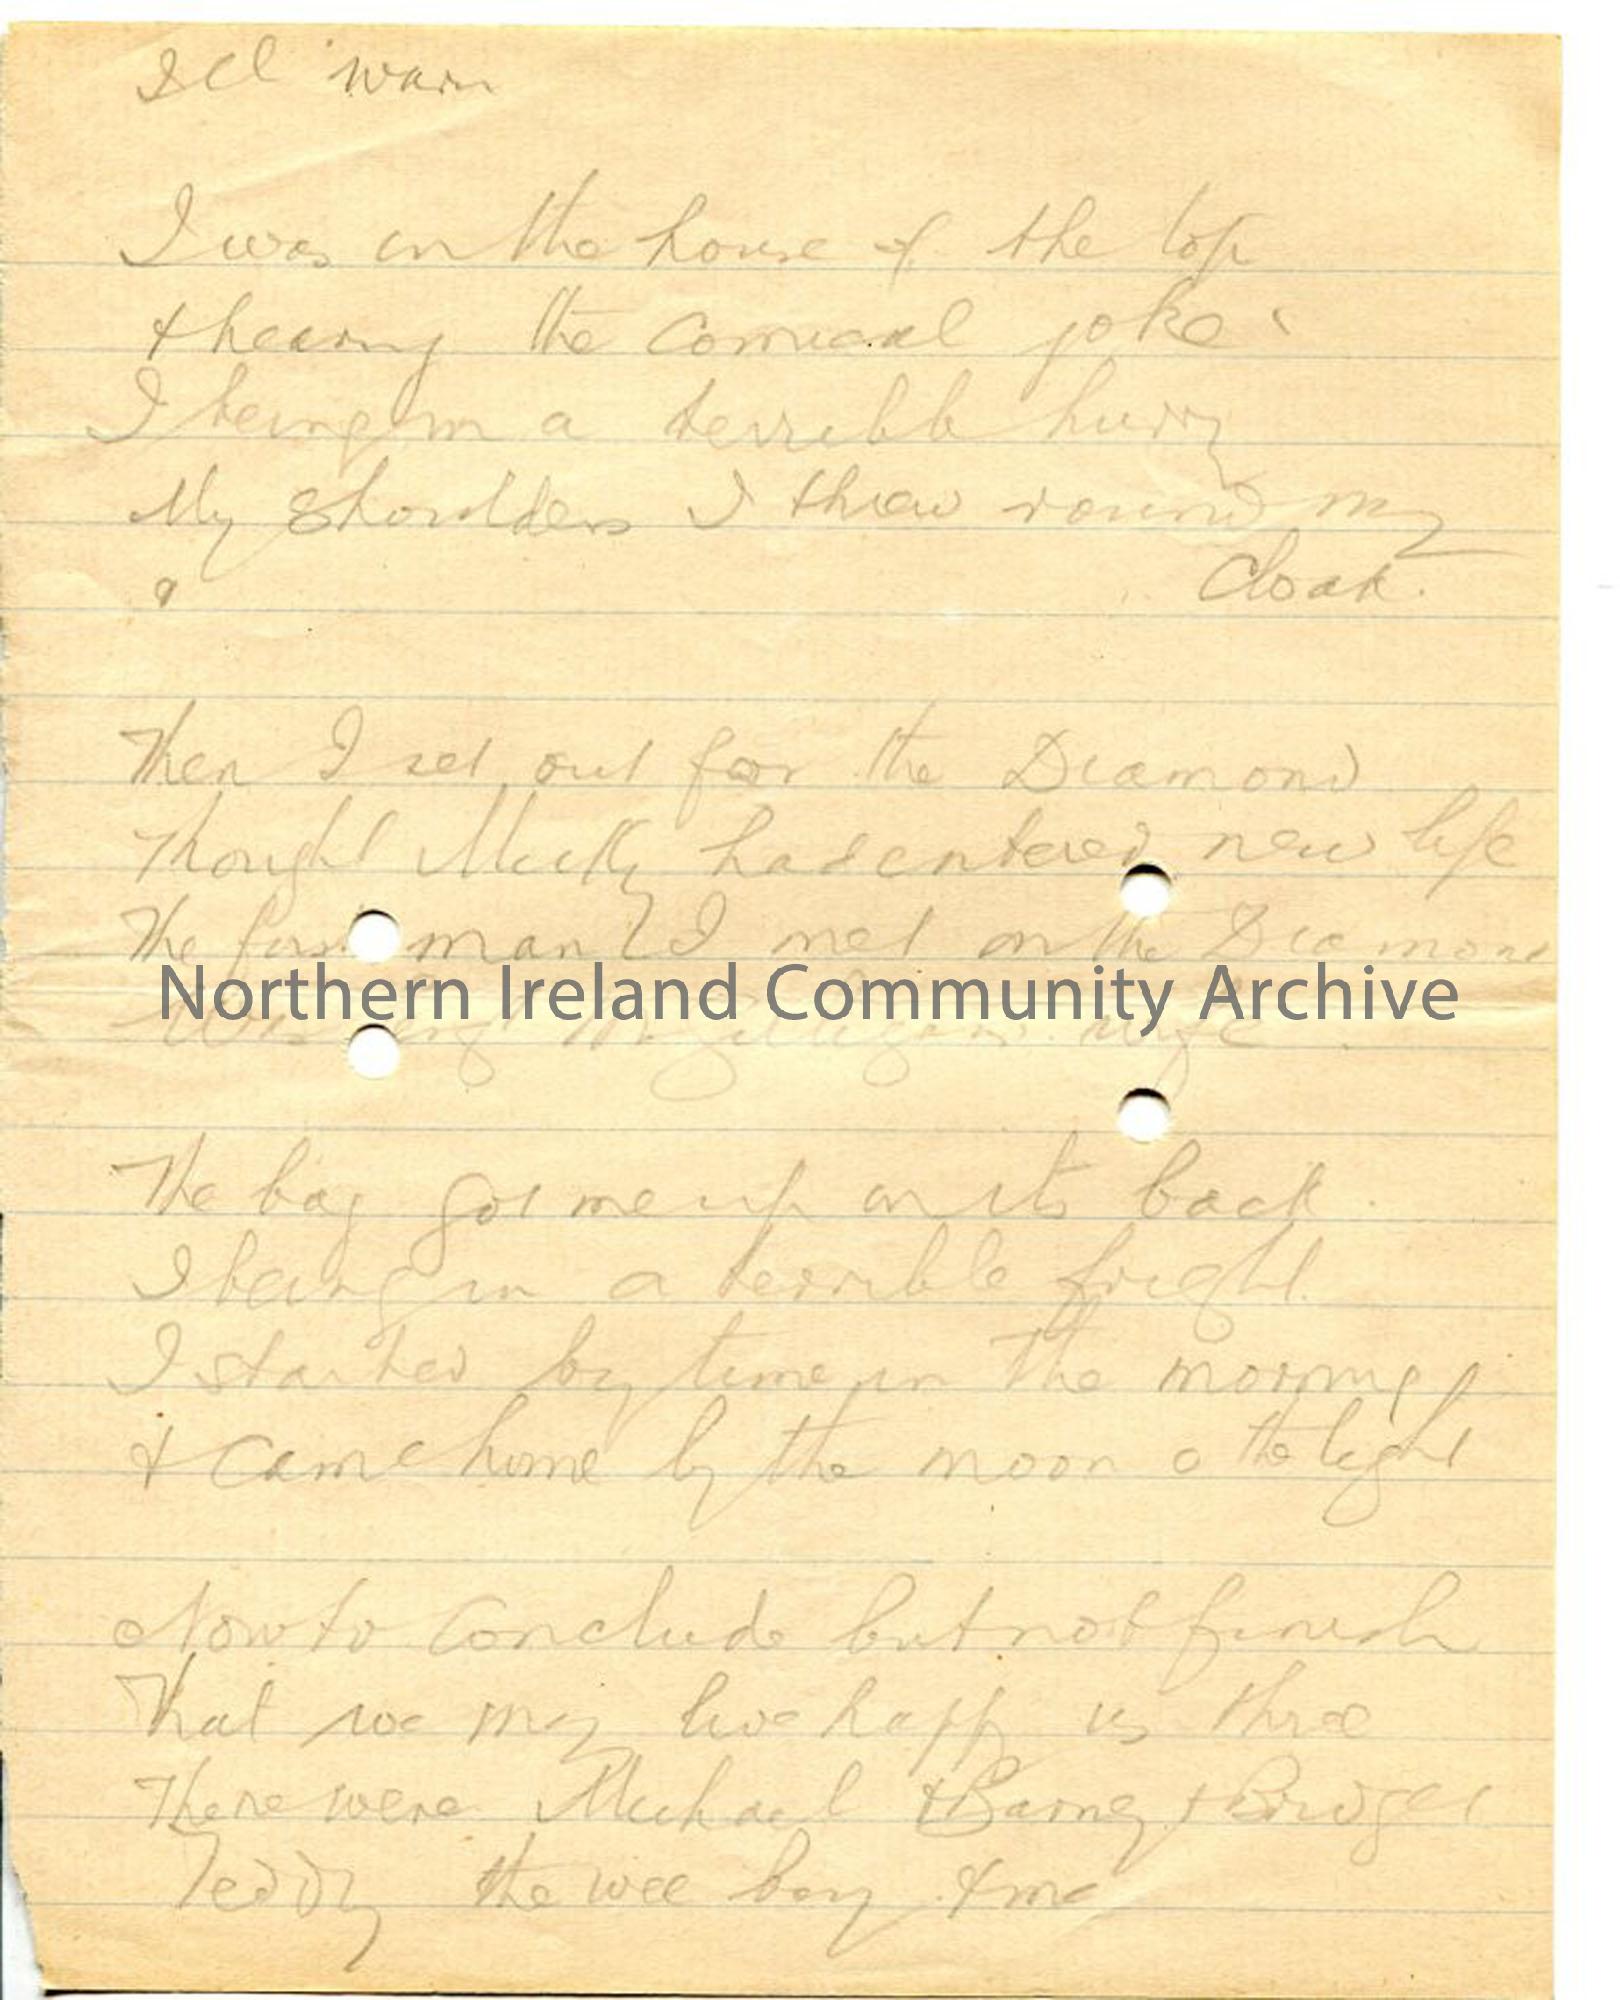 I'll warn
I was on the house of the top
& hearing the comicaal joke
I being in a terribbb hurry
My shoulders I threw round my
Cloak.
Then I set out for the Diamond
Thought Micky had entered new life
The first man I met on the Diamond
Northern Ireland Community Archive
Was Mc Gilligans wife
The bag got me up on its back
I being in a terrible fright
I started by time in the morning
& came home by the moon o the light
Now to conclude but not finish
That we may live happy us three
There were Michael & Barney & Bridget
Teddy the wee boy & me